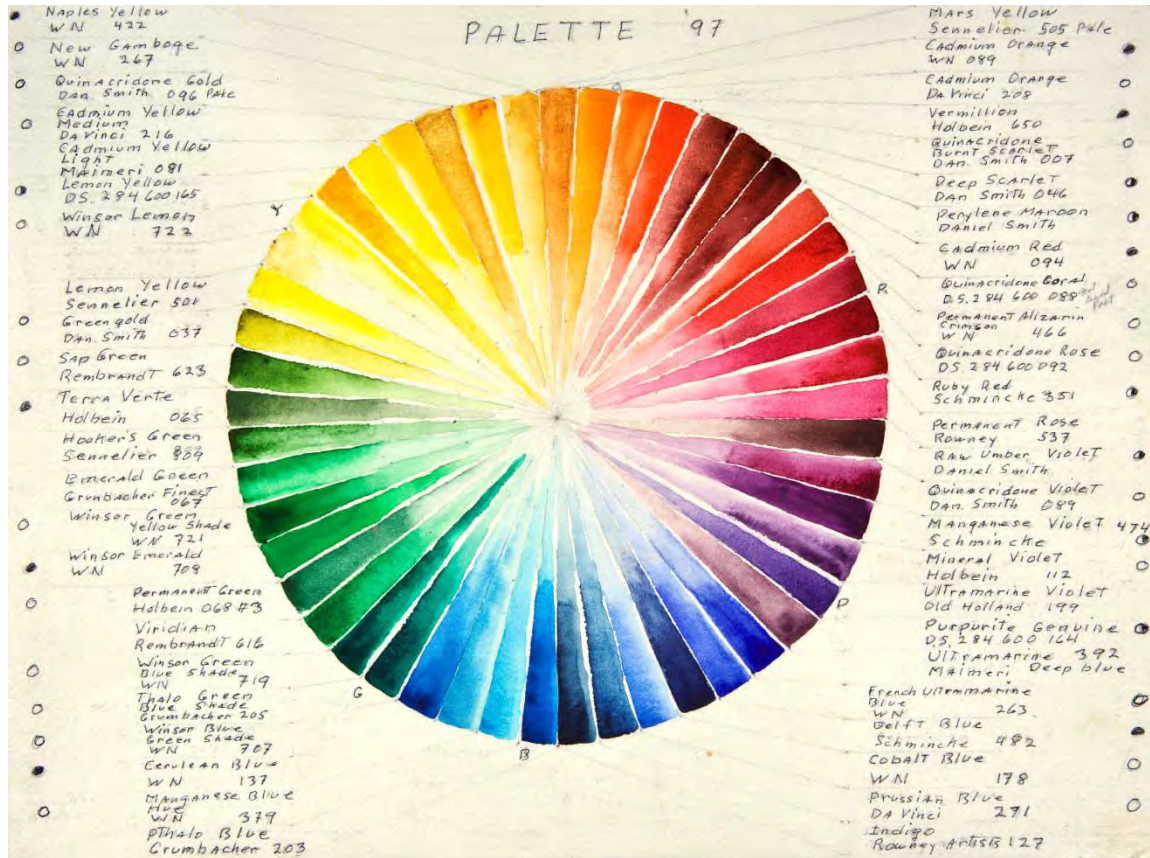 PALETTE '97
Naples Yellow
WN 422
New Gamboge
WN 267
Quinacridone Gold
Dan. Smith 096 Pale
Cadmium Yellow
Medium
Da Vinci 216
Cadmium Yellow
Light
Maimeri 081
Lemon Yellow
D.S. 284600165
Winsor Lemon
WN 722
Lemon Yellow
Sennelier 501
Greengold
Dan. Smith 037
Sap Green
Rembrandt 623
Terra Verte
Holbein 065
Hooker's Green
Sennelier 809
Emerald Green
Grumbacher Finest
067
Winsor Green
Yellow Shade
WN 721
Winsor Emerald
WN 708
Permanent Green
Holbein 068 #3
Viridian
Rembrandt 616
Winsor Green
Blue Shade
WN 719
Thalo Green
Blue Shade
Grumbacher 205
Winsor Blue
Green Shade
WN 707
Cerulean Blue
WN 137
Manganese Blue
Hue
WN 379
pThalo Blue
Grumbacher 203
Y
R
P
G
B
Mars Yellow
Sennelier 505 Pale
Cadmium Orange
WN 089
Cadmium Orange
Da Vinci 208
Vermillion
Holbein 650
Quinacridone
Burnt Scarlet
Dan. Smith 007
Deep Scarlet
Dan Smith 046
Perylene Maroon
Daniel Smith
Cadmium Red
WN 094
Quinacridone Coral
D.S. 284 600 088
Permanent Alizarin
Crimson
WN 466
Quinacridone Rose
D.S. 284 600 092
Ruby Red
Schmincke 351
Permanent Rose
Rowney 537
Raw Umber Violet
Daniel Smith
Quinacridone Violet
Dan. Smith 089
Manganese Violet 474
Schmincke
Mineral Violet
Holbein 112
Ultramarine Violet
Old Holland 199
Purpurite Genuine
D.S. 284 600 164
Ultramarine 392
Maimeri Deep blue
French Ultrammarine
Blue
WN 263
Delft Blue
Schmincke 482
Cobalt Blue
WN 178
Prussian Blue
Da Vinci 271
Indigo
Rowney Artists 127